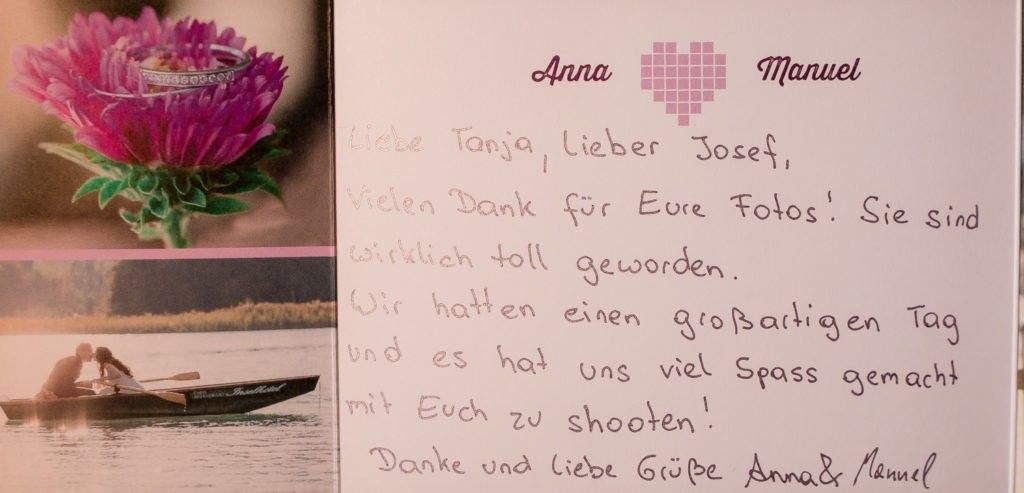 Anna Manuel
Liebe Tanja, lieber Josef,
Vielen Dank für Eure Fotos! Sie sind
wirklich toll geworden.
Wir hatten einen großartigen Tag
und es hat uns viel Spass gemacht
mit Euch zu shooten!
Danke und liebe Grüße Anna & Manuel
Inselhotel